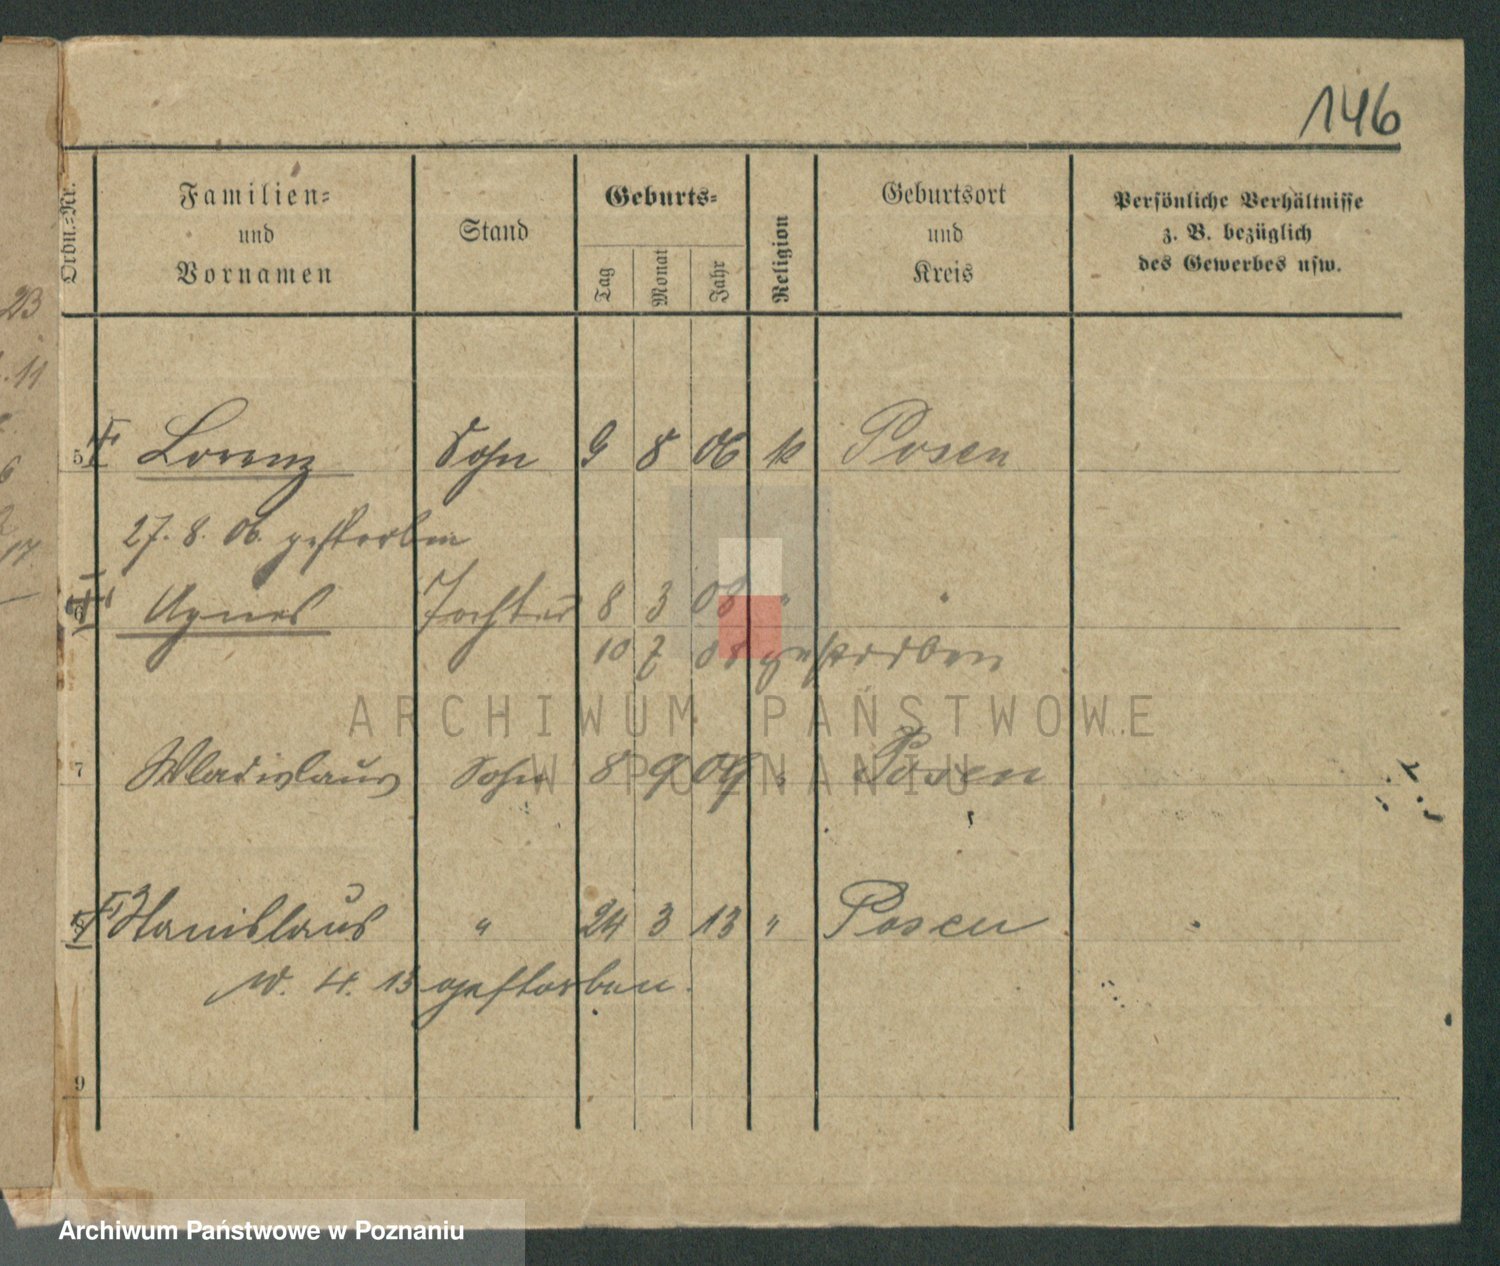 146
Ordn.=Nr.
Familien=
und
Vornamen
Stand
Geburts=
Tag
Monat
Jahr
Religion
Geburtsort
und
Kreis
Persönliche Verhältnisse
z. B. bezüglich
des Gewerbes usw.
23
11
17.
5 Lorenz Sohn 9 8 06 k Posen
27. 8. 06. gestorben
6 Agnes Tochter 8 3 08 " "
10 7 08 gestorben
ARCHIWUM PAŃSTWOWE
W POZNANIU
7 Wladislaus Sohn 8 9 09 " Posen
Stanislaus " 24 3 13 " Posen
4. 13 gestorben.
9
Archiwum Państwowe w Poznaniu